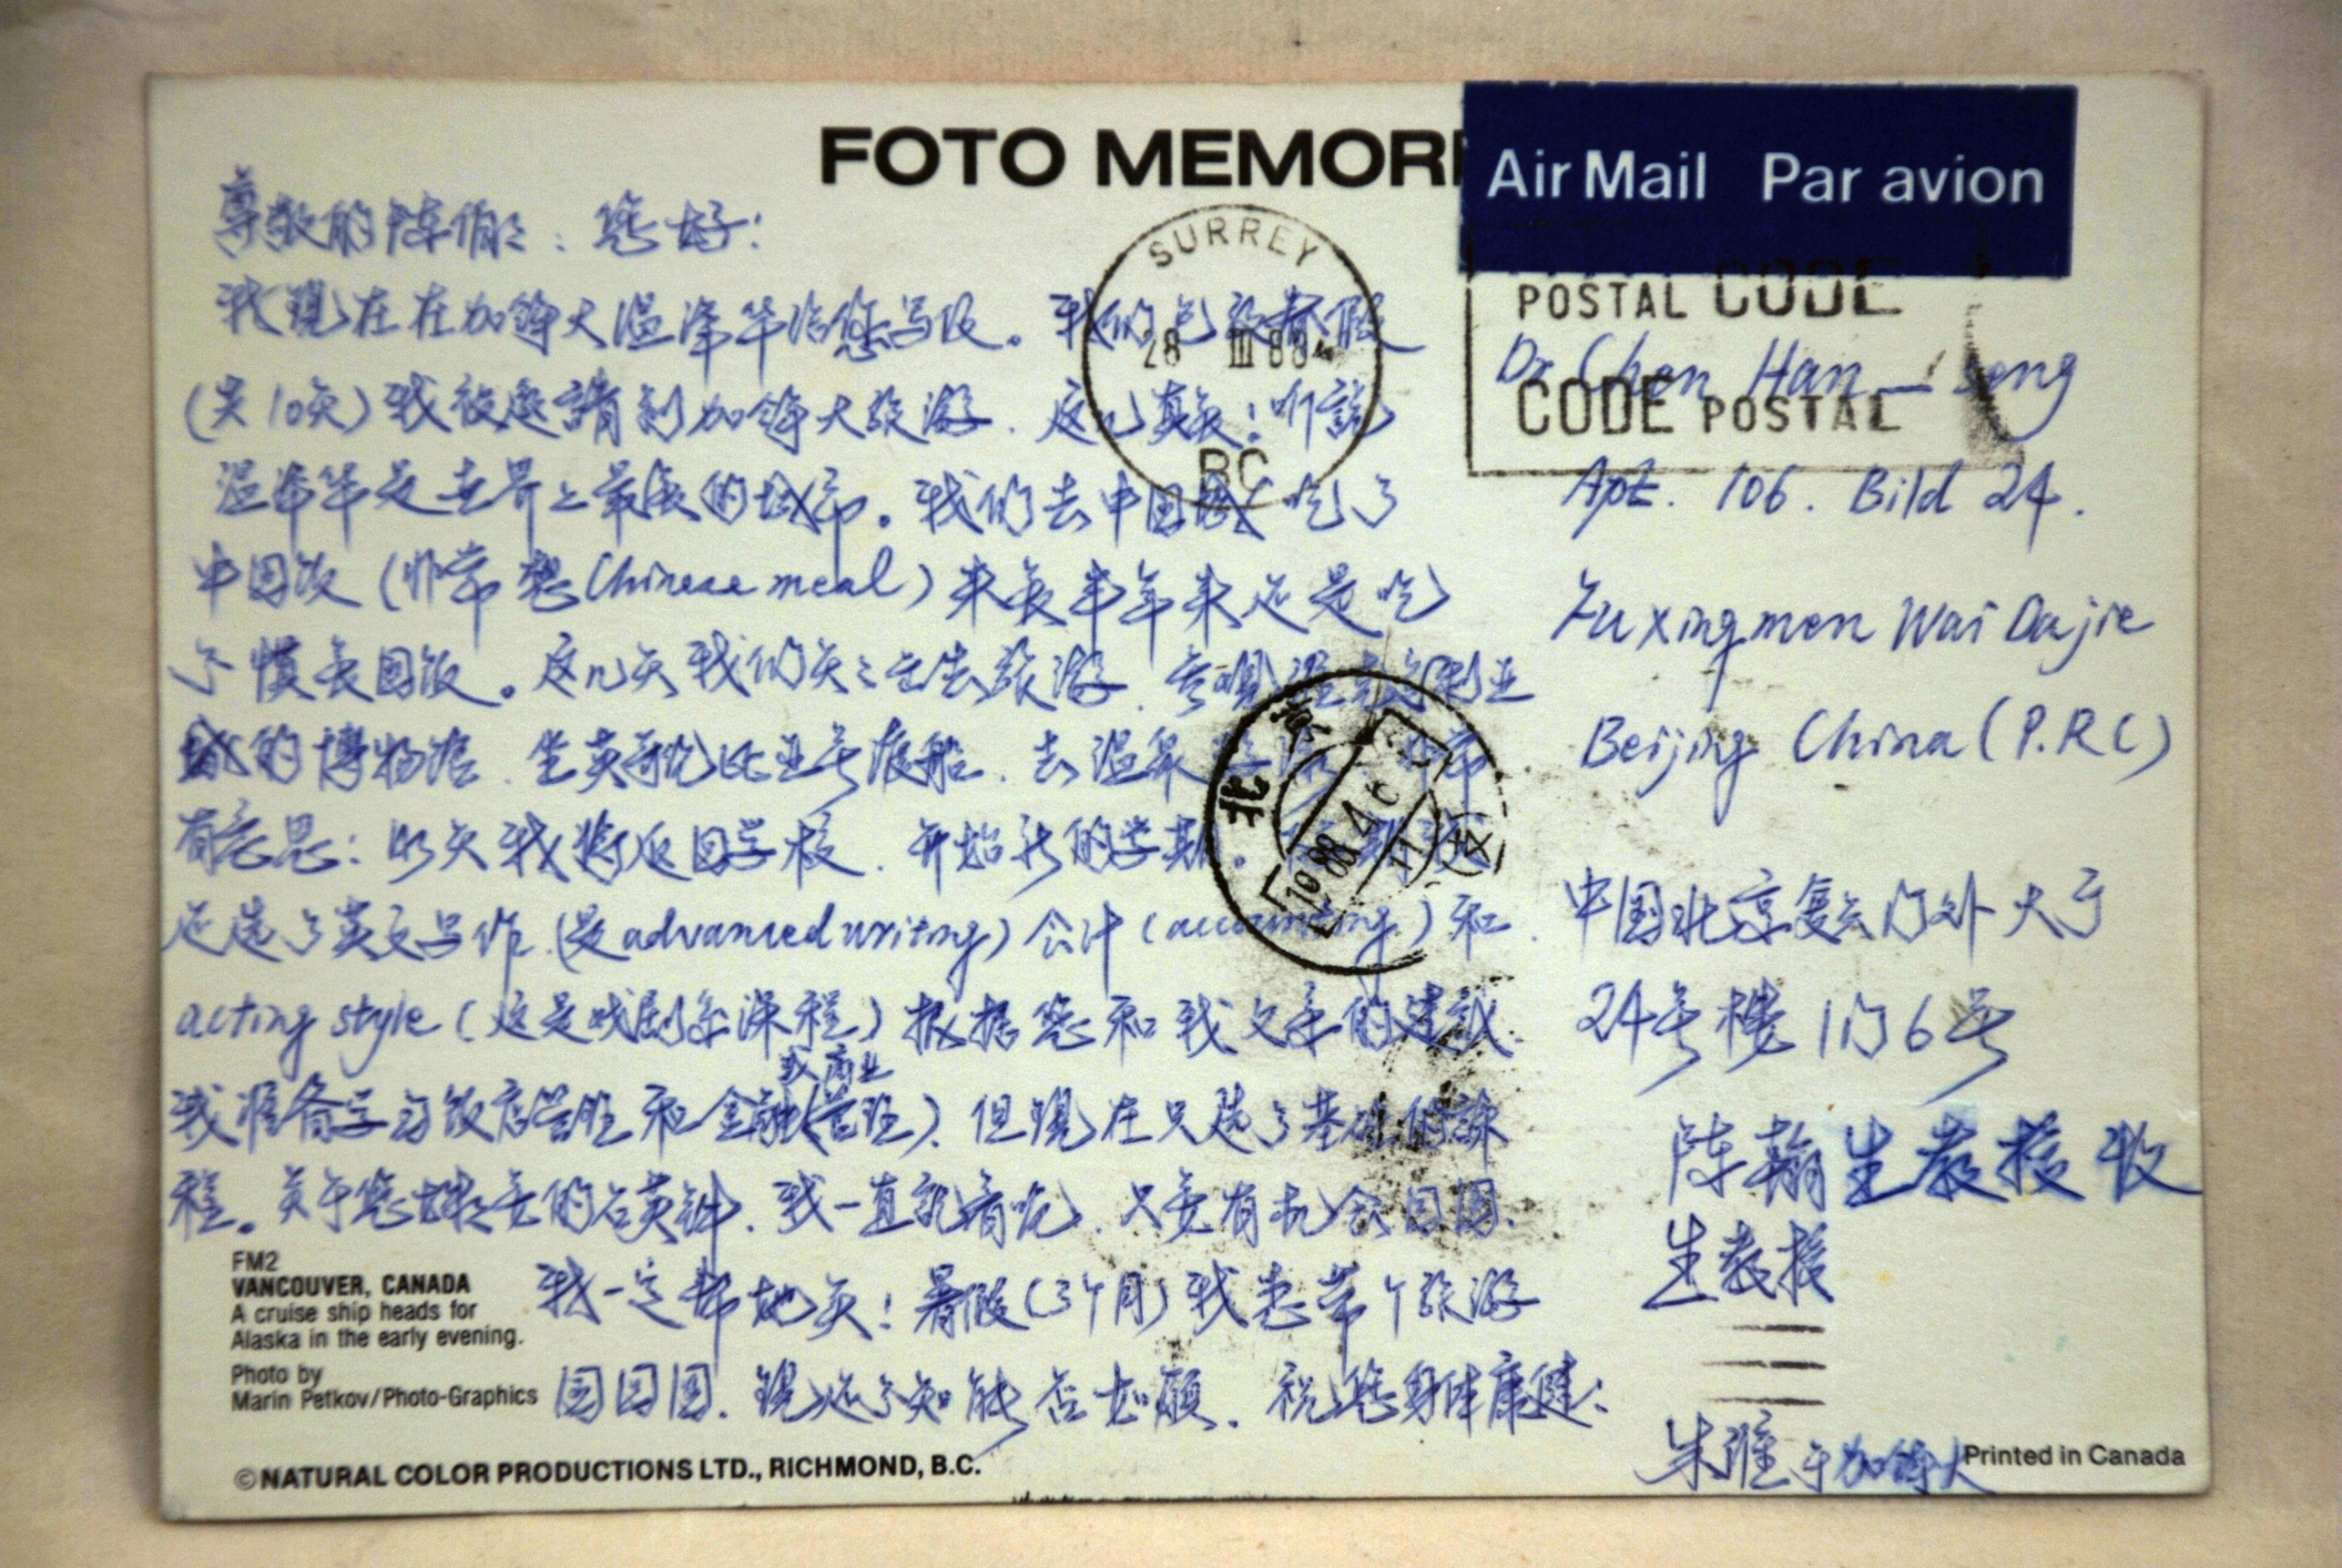 FOTO MEMORI
Air Mail Par avion
尊敬的陈伯伯：您好！
我现在在加拿大温泽华给您写信。我们已放春假
(共10天)我被邀請到加拿大旅游. 这几天！听説
温泽华是世界上最美的城市。我们去中国城吃了
中国饭(非常想Chinese meal)来美半年来还是吃
不慣美国饭。这几天我们天天出去旅游.
的博物馆.坐英哥伦比亚号渡船.去温泉
有意思！明天我将返回学校.开始新的学期。
还选了英文写作(是advanced writing)会计(accounting)和
acting style(这是戏剧系课程)根据您和我父亲的建议.
或商业
我准备学习饭店管理和金融(管理).但现在只选了基础的課
程。关于您姐姐的石英鈡.我一直記着呢.只要有机会回国.
我一定帮她买！暑假(3个月)我想带个旅游
团回国.现还不知能否如願.祝您身体康健！
SURREY
28 III 88
BC
POSTAL CODE
CODE POSTAL
Dr Chen Han-Seng
Apt. 106. Bild 24.
Fuxingmen Wai Dajie
Beijing China (P.R.C)
北京
1988.4.6
中国北京复兴门外大于
24号楼1门6号
陈翰生教授收
生教授
朱潍于加拿大
FM2
VANCOUVER, CANADA
A cruise ship heads for
Alaska in the early evening.
Photo by
Marin Petkov/Photo-Graphics
©NATURAL COLOR PRODUCTIONS LTD., RICHMOND, B.C.
Printed in Canada